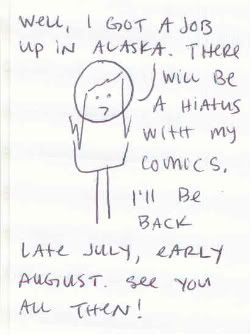 Well, I GOT A JOB
UP IN ALASKA. THERE
WILL BE
A HIATUS
WITH MY
COMICS.
I'll BE
BACK
LATE JULY, EARLY
AUGUST. SEE YOU
ALL THEN!